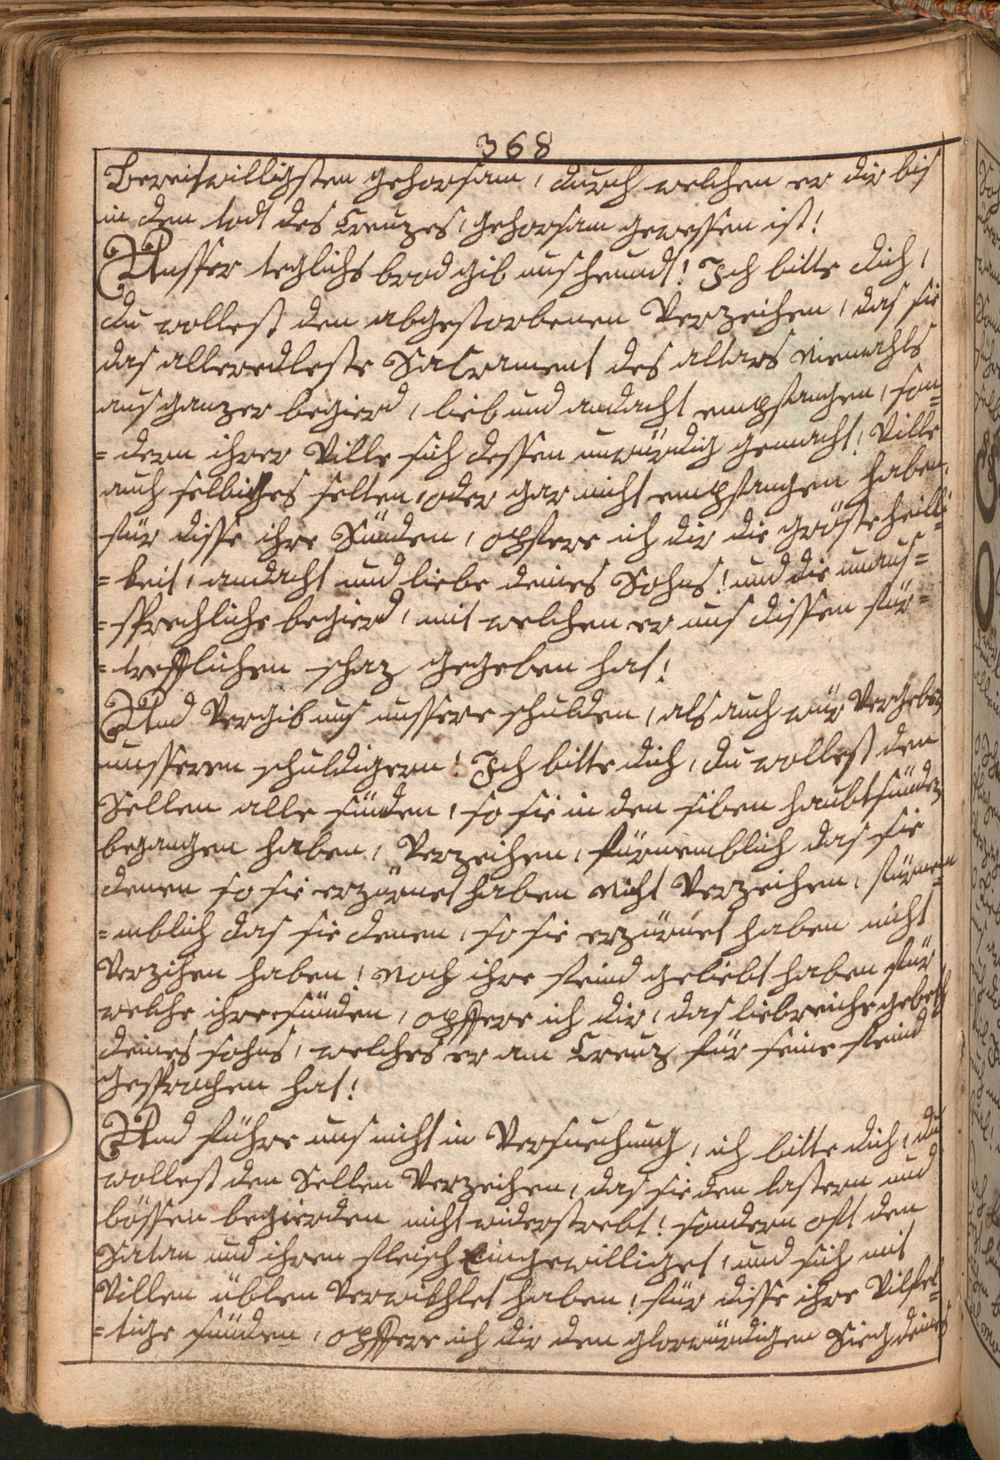 368
bereitwilligsten gehorsam, durch welchen er dir bis
in den todt des Creuzes, gehorsam gewessen ist!
Unsser teglichs brod gib uns heundt! Ich bitte dich,
du wollest den abgestorbenen Verzeihen, das sie
das alleredleste Sacrament des altars niemahls
aus ganzer begierd, lieb und andacht empfangen, son=
=dern ihrer Ville sich dessen unwürdig gemacht! Ville
auch selbiches selten, oder gar nicht empfangen haben,
für disse ihre Sünden, opfere ich dir die gröste heilli=
=keit, andacht und liebe deines Sohns! und die unaus=
=sprechliche begierd, mit welchen er uns dissen für=
=trefflichen schaz gegeben hat!
Und Vergib uns unssere schulden, als auch wür Vergeben
unsseren schuldigern! Ich bitte dich, du wollest den
Sellen alle sünden, so sie in den siben haubtsünden
begangen haben, Verzeihen, fürnemblich das sie
denen so sie erzürnet haben nicht Verzeihen, fürne=
=mblich das sie denen, so sie erzürnet haben nicht
Verzihen haben! noch ihre feind geliebt haben für
welche ihre sünden, opffere ich dir, das liebreiche gebett
deines sohns, welches er am Creuz für seine feind
gesprochen hat!
Und führe uns nicht in Versuechung, ich bitte dich, du
wollest den Sellen Verzeihen, das sie den lastern und
bössen begierden nicht widerstrebt! sondern oft den
Satan und ihrem fleisch Eingewilliget, und sich mit
Villen üblen Verwikhlet haben! für disse ihre Vilfel=
=tige sünden, opffere ich dir den glorwürdigen Sieg deines